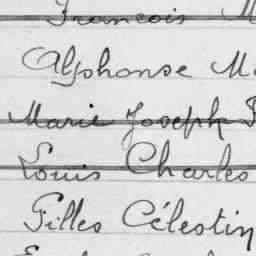 Francois M
Alphonse Ma
Marie Joseph
Louis Charles
Gilles Célestin